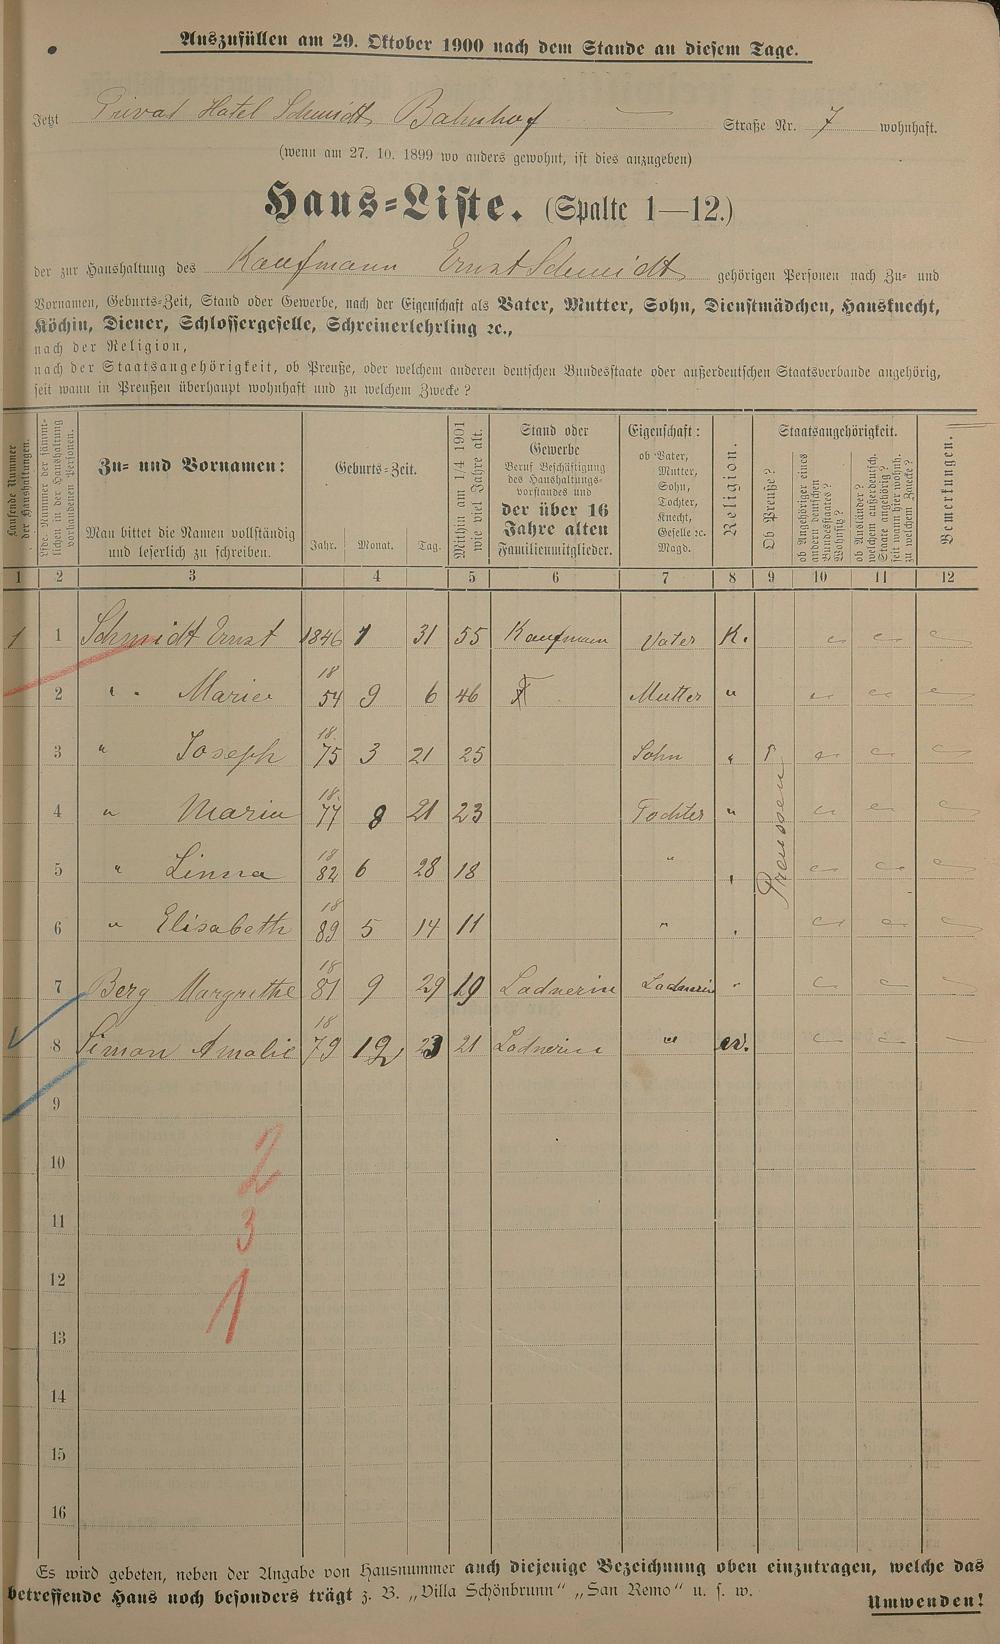 Auszufüllen am 29. Oktober 1900 nach dem Stande an diesem Tage.
Jetzt Privat Hotel Schmidt Bahnhof — Straße Nr. 7 wohnhaft.
(wenn am 27. 10. 1899 wo anders gewohnt, ist dies anzugeben)
Haus-Liste. (Spalte 1—12.)
der zur Haushaltung des Kaufmann Ernst Schmidt gehörigen Personen nach Zu- und
Vornamen, Geburts-Zeit, Stand oder Gewerbe, nach der Eigenschaft als Vater, Mutter, Sohn, Dienstmädchen, Hausknecht,
Köchin, Diener, Schlossergeselle, Schreinerlehrling ec.,
nach der Religion,
nach der Staatsangehörigkeit, ob Preuße, oder welchem anderen deutschen Bundesstaate oder außerdeutschen Staatsverbande angehörig,
seit wann in Preußen überhaupt wohnhaft und zu welchem Zwecke?
Laufende Nummer
der Haushaltungen.
Lfde. Nummer der sämmt-
lichen in der Haushaltung
vorhandenen Personen.
Zu- und Vornamen:
Man bittet die Namen vollständig
und leserlich zu schreiben.
Geburts-Zeit.
Jahr. Monat. Tag.
Mithin am 1/4 1901
wie viel Jahre alt.
Stand oder
Gewerbe
Beruf Beschäftigung
des Haushaltungs-
vorstandes und
der über 16
Jahre alten
Familienmitglieder.
Eigenschaft:
ob Vater,
Mutter,
Sohn,
Tochter,
Knecht,
Geselle ec.
Magd.
Religion.
Staatsangehörigkeit.
Ob Preuße?
ob Angehöriger eines
andern deutschen
Bundesstaates?
Wohnsitz?
ob Ausländer?
welchem außerdeutsch.
Staate angehörig?
seit wann hier wohnh.
zu welchem Zwecke?
Bemerkungen.
1 2 3 4 5 6 7 8 9 10 11 12
1 1 Schmidt Ernst 1846 1 31 55 Kaufmann Vater K.
2 " " Marie 1854 9 6 46 Mutter "
3 " Joseph 1875 3 21 25 Sohn "
4 " Maria 1877 8 21 23 Tochter "
5 " Linna 1882 6 28 18 " "
6 " Elisabeth 1889 5 14 11 " "
Preussen
7 Berg Margrethe 1881 9 29 19 Ladnerin Ladnerin "
8 Simon Amalie 1879 12 23 21 Ladnerin " ev.
9
10
2
11
3
12
1
13
14
15
16
Es wird gebeten, neben der Angabe von Hausnummer auch diejenige Bezeichnung oben einzutragen, welche das
betreffende Haus noch besonders trägt z. B. „Villa Schönbrunn" „San Remo" u. s. w.
Umwenden!